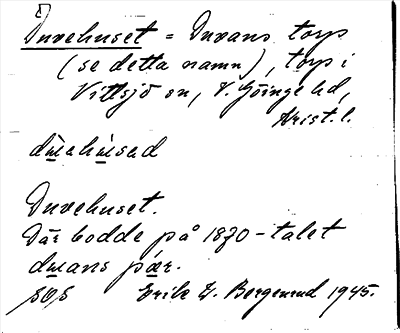 Duvehuset = Duvans torp
(se detta namn), torp i
Vittsjö sn, V. Göinge hd,
Krist. l.
dua̱hu̱sad
Duvehuset.
Där bodde på 1870-talet
duans pär.
Erik G. Bergenrud 1945.